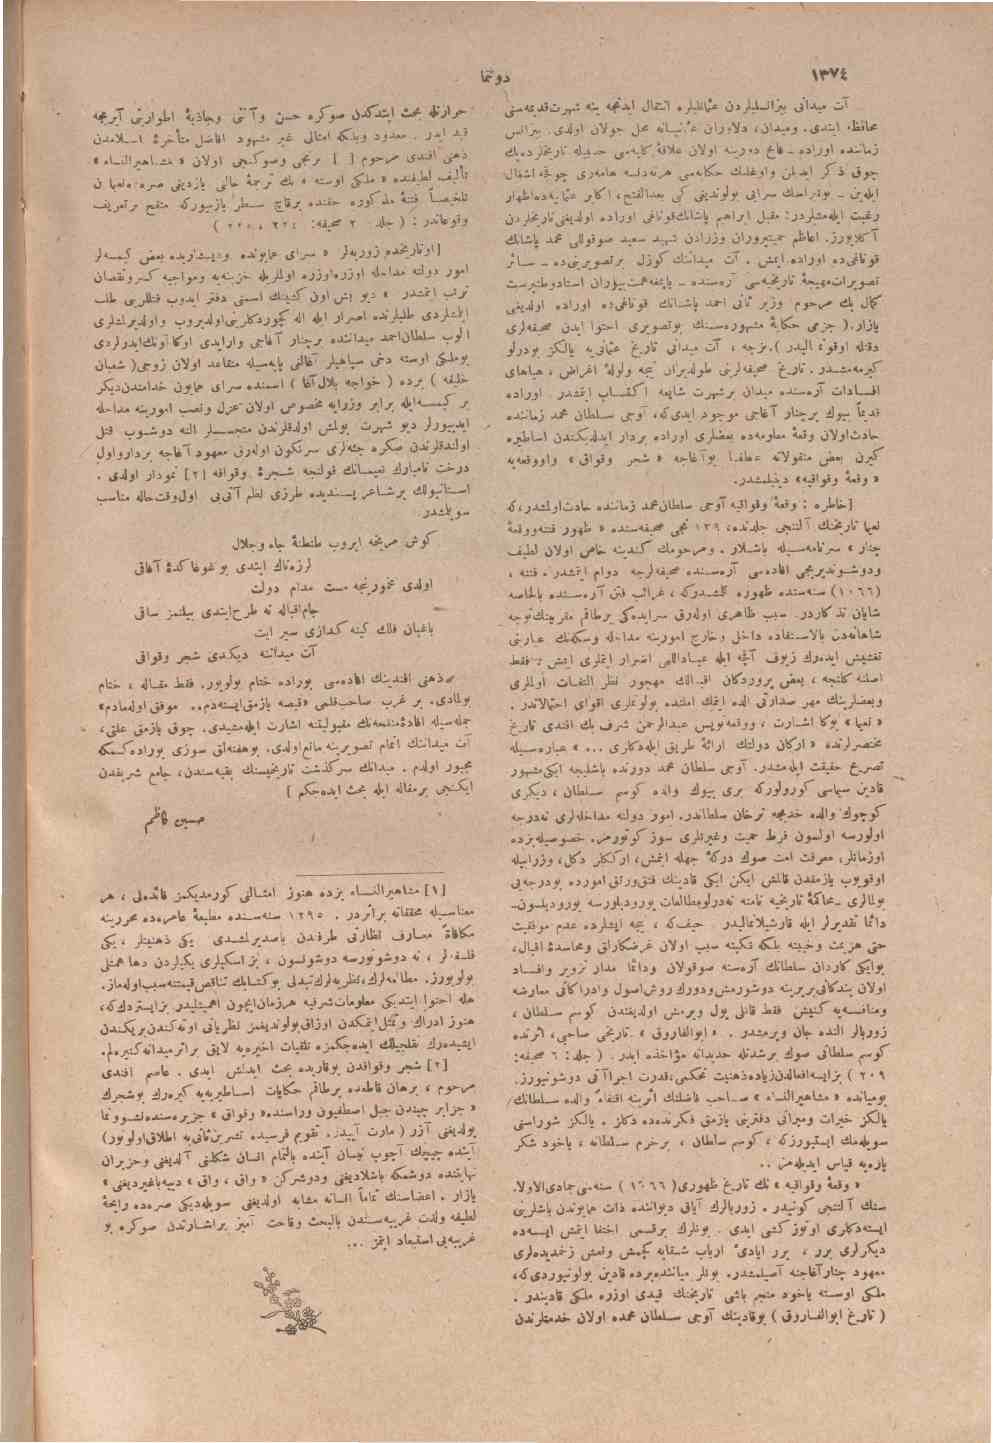 ١٣٧٤
دوننما
آت میدانی بیزانسلیلردن عثمانلیلره انتقال ایدنجه ینه شهرت قدیمه‌سنی
محافظه ایتدی. ومیدان، دلاوران عثمانیانه محل جولان اولدی. بیزانس
زماننده اوراده ـ فاتح دورینه اولان علاقهٔ کلیه‌سی حسبیله تاریخلرده پك
چوق ذکر ایدیلن
رغبت ایله‌مشلردر: مقبل ابراهیم پاشانك قوناغی اوراده اولدیغنی تاریخلردن
آکلایورز. اعاظم حمیتپروران وزرادن شهید سعید صوقوللی محمد پاشانك
قوناغی ده اوراده ایمش. آت میداننك کوزل برتصویرینی ده ـ سائر
تصویرات مهیجهٔ تاریخیه‌سی آره‌سنده ـ استاد وطنپرست
کمال بك مرحوم وزیر ثانی احمد پاشانك قوناغی ده اوراده اولدیغنی
یازار. ( جزمی حکایهٔ مشهوره‌سنك بوتصویری احتوا ایدن صحیفه‌لری
دقتله اوقونمالیدر ). بزجه ، آت میدانی تاریخ عثمانی‌یه یالکز بودرلو
کیرمه‌مشدر. تاریخ صحیفه‌لرینی طولدیران نیجه ولولهٔ اغراض ، هیاهای
افسادات آره‌سنده میدان برشهرت شایعه اکتساب ایتمشدر. اوراده
قدیماً بیوك برچنار آغاجی موجود ایدی که، آوجی سلطان محمد زماننده
حادث اولان وقعهٔ معلومه‌ده بعضلری اوراده بردار ایدلدیکندن اساطیره
کیرن بعض منقولاته عطفاً بوآغاجه « شجر وقواق » واووقعه‌یه
« وقعهٔ وقواقیه» دینیلمشدر.
[ خاطره : وقعهٔ وقواقیه آوجی سلطان محمد زماننده حادث اولمشدر، که
نعیما تاریخنك آلتنجی جلدنده، ١٣٩ نجی صحیفه‌سنده « ظهور فتنه ووقعهٔ
چنار » سرنامه‌سیله باشلار. ومرحومك کندینه خاص اولان لطیف
ودوشوندیریجی افاده‌سی آره‌سنده صحیفه‌لرجه دوام ایتمشدر. فتنه ،
(١٠٦٦) سنه‌سنده ظهوره کلمشدرکه ، غرائب فتن آره‌سنده بالخاصه
شایان تذکاردر. سبب ظاهری اوله‌رق سرایده‌کی برطاقم مقربینك توجه
شاهانه‌دن بالاستفاده داخل وخارج امورینه مداخله وسکه‌نك عیارینی
تغشیش ایده‌رك زیوف آقچه ایله عباداللهی اضرار ایتملری ایمش ؛ فقط
اصلنه کلنجه ، بعض پروردکان اقبالك مهجور نظر التفات اولملری
وبعضلرینك مهر صدارتی الده ایتمك املنده بولونملری اقوای احتمالاتدر.
« نعیما » بوکا اشارت ، ووقعه‌نویس عبدالرحمن شرف بك افندی تاریخ
مختصرلرنده « ارکان دولتك ارائهٔ طریق ایله‌دکلری ... » عباره‌سیله
تصریح حقیقت ایله‌مشدر. آوجی سلطان محمد دورنده باشلیجه ایکی مشهور
قادین سیماسی کورولورکه بری بیوك والده کوسم سلطان ، دیکری
کوچوك والده خدیجه ترخان سلطاندر. امور دولته مداخله‌لری نه‌درجه
اولورسه اولسون فرط حمیت وغیرتلری سوز کوتورمز. خصوصیله بزده
اوزمانلر، معرفت امت صوك درکهٔ جهله ایتمش، ارککلر دکل، وزرا بیله
اوقویوب یازمقدن قالمش ایکن ایکی قادینك فتق ورتق اموردە بودرجه‌یی
بولمالری ـ محاکمهٔ تاریخیه نامنه نه‌درلو مطالعات یورودیلورسه یورودیلسون ـ
دائما تقدیرلر ایله قارشیلانمالیدر. حیف که ، نیجه ایشلرده عدم موفقیت
حتی هزیمت وخیبته بلکه نکبته سبب اولان غرضکارانی ومحاسدهٔ اقبال،
بوایکی کاردان سلطانك آره‌سنه صوقولان ودائما مدار تزویر وافساد
اولان بندکانی بربرینه دوشورمش ودورك روش اصول وادراکانی معارضه
ومنافسه‌یه کنیش فقط قانلی یول ویرمش اولدیغندن کوسم سلطان ،
زوربالر النده جان ویرمشدر. « ابوالفاروق » تاریخی صاحبی، اثرنده
کوسم سلطانی صوك برشدتله حدیدانه مؤاخذه ایدر. ( جلد : ٦ صحیفه:
٢٠٩ ) بزایسه افعالدن زیاده ذهنیت تحکمی، قدرت اجراآتی دوشونیورز.
بومیانده « مشاهیرالنساء » صاحب فاضلنك اثرینه اقتفاءً والده سلطانك
یالکز خیرات ومبراتی دفترینی یازمق فکرنده‌ده دکلز. یالکز شوراسنی
سویله‌مك ایستیورزکه ، کوسم سلطان ، برخرم سلطانه ، یاخود شکر
پاره‌یه قیاس ایدیله‌مز ..
« وقعهٔ وقواقیه » نك تاریخ ظهوری ( ١٠٦٦ ) سنه‌سی جمادی الاولا
سنك آلتنجی کونیدر. زوربالرك آیاق دیواننده ذات همایوندن باشلرینی
ایسته‌دکلری اوتوز کشی ایدی. بونلرك برقسمی اختفا ایتمش ایسه‌ده
دیکرلری برر ، برر ایادیٔ ارباب شتمابه کچمش ولمش زخمدیده‌لری
معهود چنار آغاجنه آصیلمشدر. بونلر میاننده برده قادین بولونیوردی که،
ملکی اوسته یاخود منجم باشی تاریخنك قیدی اوزره ملکی قادیندر.
( تاریخ ابوالفاروق ) بوقادینك آوجی سلطان محمده اولان خدمتلرندن
حرارتله بحث ایتدکدن صوکره حسن وآننی وجاذبهٔ اطوارینی آیریجه
قید ایدر. معدود وبلکه امثالی غیر مشهود افاضل متأخرهٔ اسلامدن
ذهنی افندی مرحوم [١] برنجی وصوکنجی اولان « مشاهیرالنساء »
تألیف لطیفنده « ملکی اوسته » نك ترجمهٔ حالی یازدیغی صره‌ده نعیما دن
تلخیصاً فتنهٔ مذکوره حقنده برقاچ سطر یازیورکه منقح برتعریف
وقوعاتدر : ( جلد ٢ صحیفه: ٢٢٤ ، ٢٢٥ )
[ اوتاریخده زوربه‌لر « سرای همایونده
امور دولته مداخله اوزره اوزره اولملریله خزینه‌یه ومواجبه کسر ونقصان
ترتب ایتمشدر » دیو بش اون کشینك اسمنی دفتر ایدوب قتللرینی طلب
ایتمشلردی طلبلرنده اصرار ایله اله کچوردکلرینی اولدیروب واولدیرلمشلری
آلوب سلطان احمد میداننده برچنار آغاجی وارایدی اوکا آونك ایدرلردی
بوملکی اوسته دخی سپاهیلر آغالغی پایه‌سیله متقاعد اولان زوجی ( شعبان
خلیفه ) برده ( خواجه بلال آغا ) اسمنده سرای همایون خدامندن دیکر
بر کیمسه ایله برابر وزرایه مخصوص اولان عزل ونصب امورینه مداخله
ایدییورلر دیو شهرت بولمش اولدقلرندن متجسسلر الله دوشوب قتل
اولندقلرندن صکره جثه‌لری سرنکون اوله‌رق معهود آغاجه بردار واول
درخت نامبارك نعیمانك قولنجه شجرهٔ وقواقه [٢] نمودار اولدی.
استانبوللك برشاعر پسندیده طرزی نظم آتی‌یی اول وقت حاله مناسب
سویلمشدر
کوش مریخه ایروب طنطنهٔ جاه وجلال
لرزه‌ناك ایتدی بو غوغا کدۀ آفاقی
اولدی مخمور نیجه مست مدام دولت
جام اقباله نه طرح ایتدی بیلنمز ساقی
باغبان فلك کینه کدازی سیر ایت
آت میداننه دیکدی شجر وقواقی
ذهنی افندینك افاده‌سی بوراده ختام بولویور. فقط مقاله ، ختام
بولمادی. بر غرب صاحب قلمی « قیصه یازمق ایسته‌دم.. موفق اوله‌مادم»
جمله‌سیله افادهٔ منقعه‌نك مقبولیتنه اشارت ایله‌مشیدی. چوق یازمق علتی ،
آت میداننك اتمام تصویرینه مانع اولدی. بوهفته‌لق سوزی بوراده کسمکه
مجبور اولدم. میدانك سرکذشت تاریخیسنك بقیه‌سندن، جامع شریفدن
ایکنجی بر مقاله ایله بحث ایده‌جکم ]
حسین کاظم
[١] مشاهیرالنساء بزده هنوز امثالنی کورمدیکمز فائده‌لی ، هر
معناسیله محققانه براثردر. ١٢٩٥ سنه‌سنده مطبعهٔ عامره‌ده محررینه
مکافاةً معارف نظارتی طرفندن باصدیرلمشدی یکی ذهنیتلر ، یکی
فلسفه‌لر ، نه دوشونورسه دوشونسون ، بز اسکیلری یکیلردن دها همتلی
بولویورز. مطالعه‌لرك، نظریه‌لرك تبدلی بوکتابك تناقص قیمتنه سبب اوله‌ماز.
هله احتوا ایتدیکی معلومات شرقیه هرزمان ایچون اهمیتلیدر بزایستردك که،
هنوز ادراك وتمثل ایتمکدن اوزاق بولوندیغمز نظریاتی اوته‌کندن بریکندن
ایشیده‌رك نقلجیلك ایده‌جکمزه تلقیات اخیره‌یه لایق براثر میدانه کتیره‌لم.
[٢] شجر وقواقدن بوقاریده بحث ایدلمش ایدی. عاصم افندی
مرحوم ، برهان قاطعده برطاقم حکایات اساطیریه‌یه کیره‌رك بوشجرك
« جزایر چیندن جبل اصطفیون وراسنده « وقواق » جزیره‌سنده نشو ونما
بولدیغنی آزر ( مارت آییدر. تقویم فرسیده تشرین ثانی‌یه اطلاق اولونور)
آینده چیچك آچوب نیسان آینده بالتمام انسان شکلنی آلدیغنی وحزیران
نهایتنده دوشمکه باشلادیغنی ودوشرکن « واق ، واق » دییه باغیردیغنی »
یازار. اعضاسنك تماماً انسانه مشابه اولدیغنی سویله‌دیکی صره‌ده رایحهٔ
لطیفه ولذت غریبه‌سندن بالبحث وقاحت آمیز براشارتدن صوکره بو
غریبه‌یی استبعاد ایتمز ...